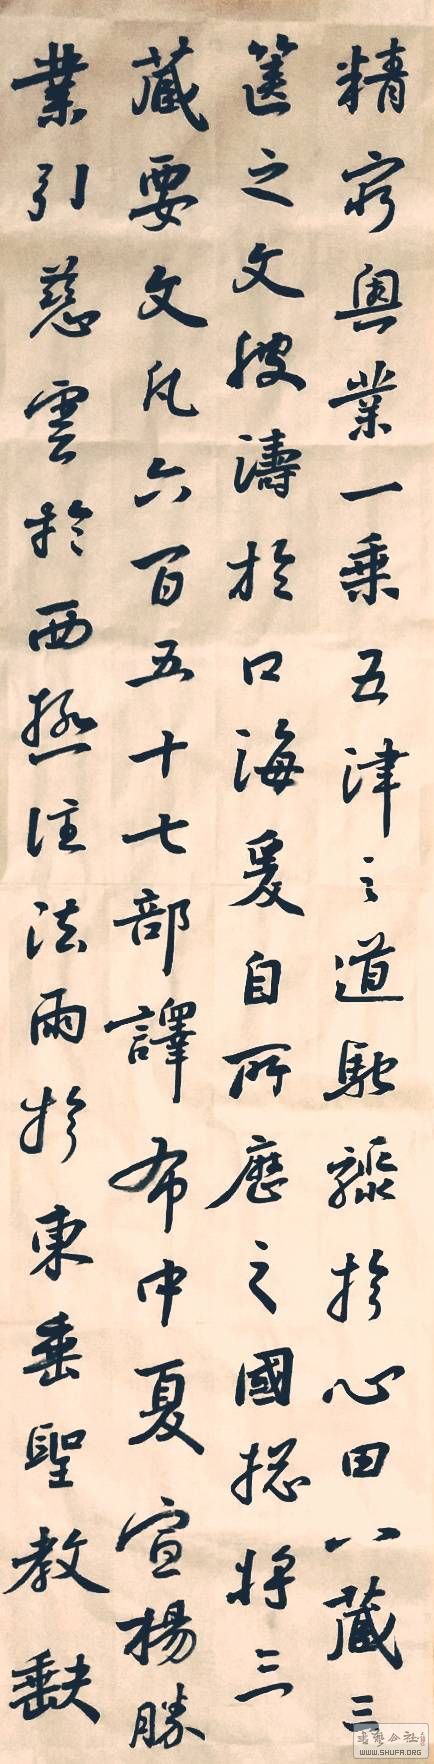 精窮奧業一乘五津之道馳驟於心田八藏三
篋之文波濤於口海爰自所歷之國摠將三
藏要文凡六百五十七部譯布中夏宣楊勝
業引慈雲於西極注法雨於東垂聖教缺
书艺公社
WWW.SHUFA.ORG